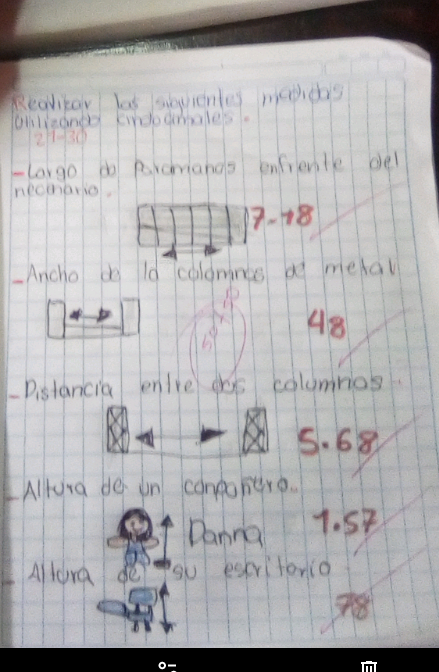 Realizar las siguientes medidas
Utilizando
21-30
-Largo do Paramanos enfrente del
7-18
-Ancho de la colomnas de metal
48
-Distancia entre dos columnas.
5.68
-Altura de un conpañero.
Danna 1.57
- Altura de su escritorio
78